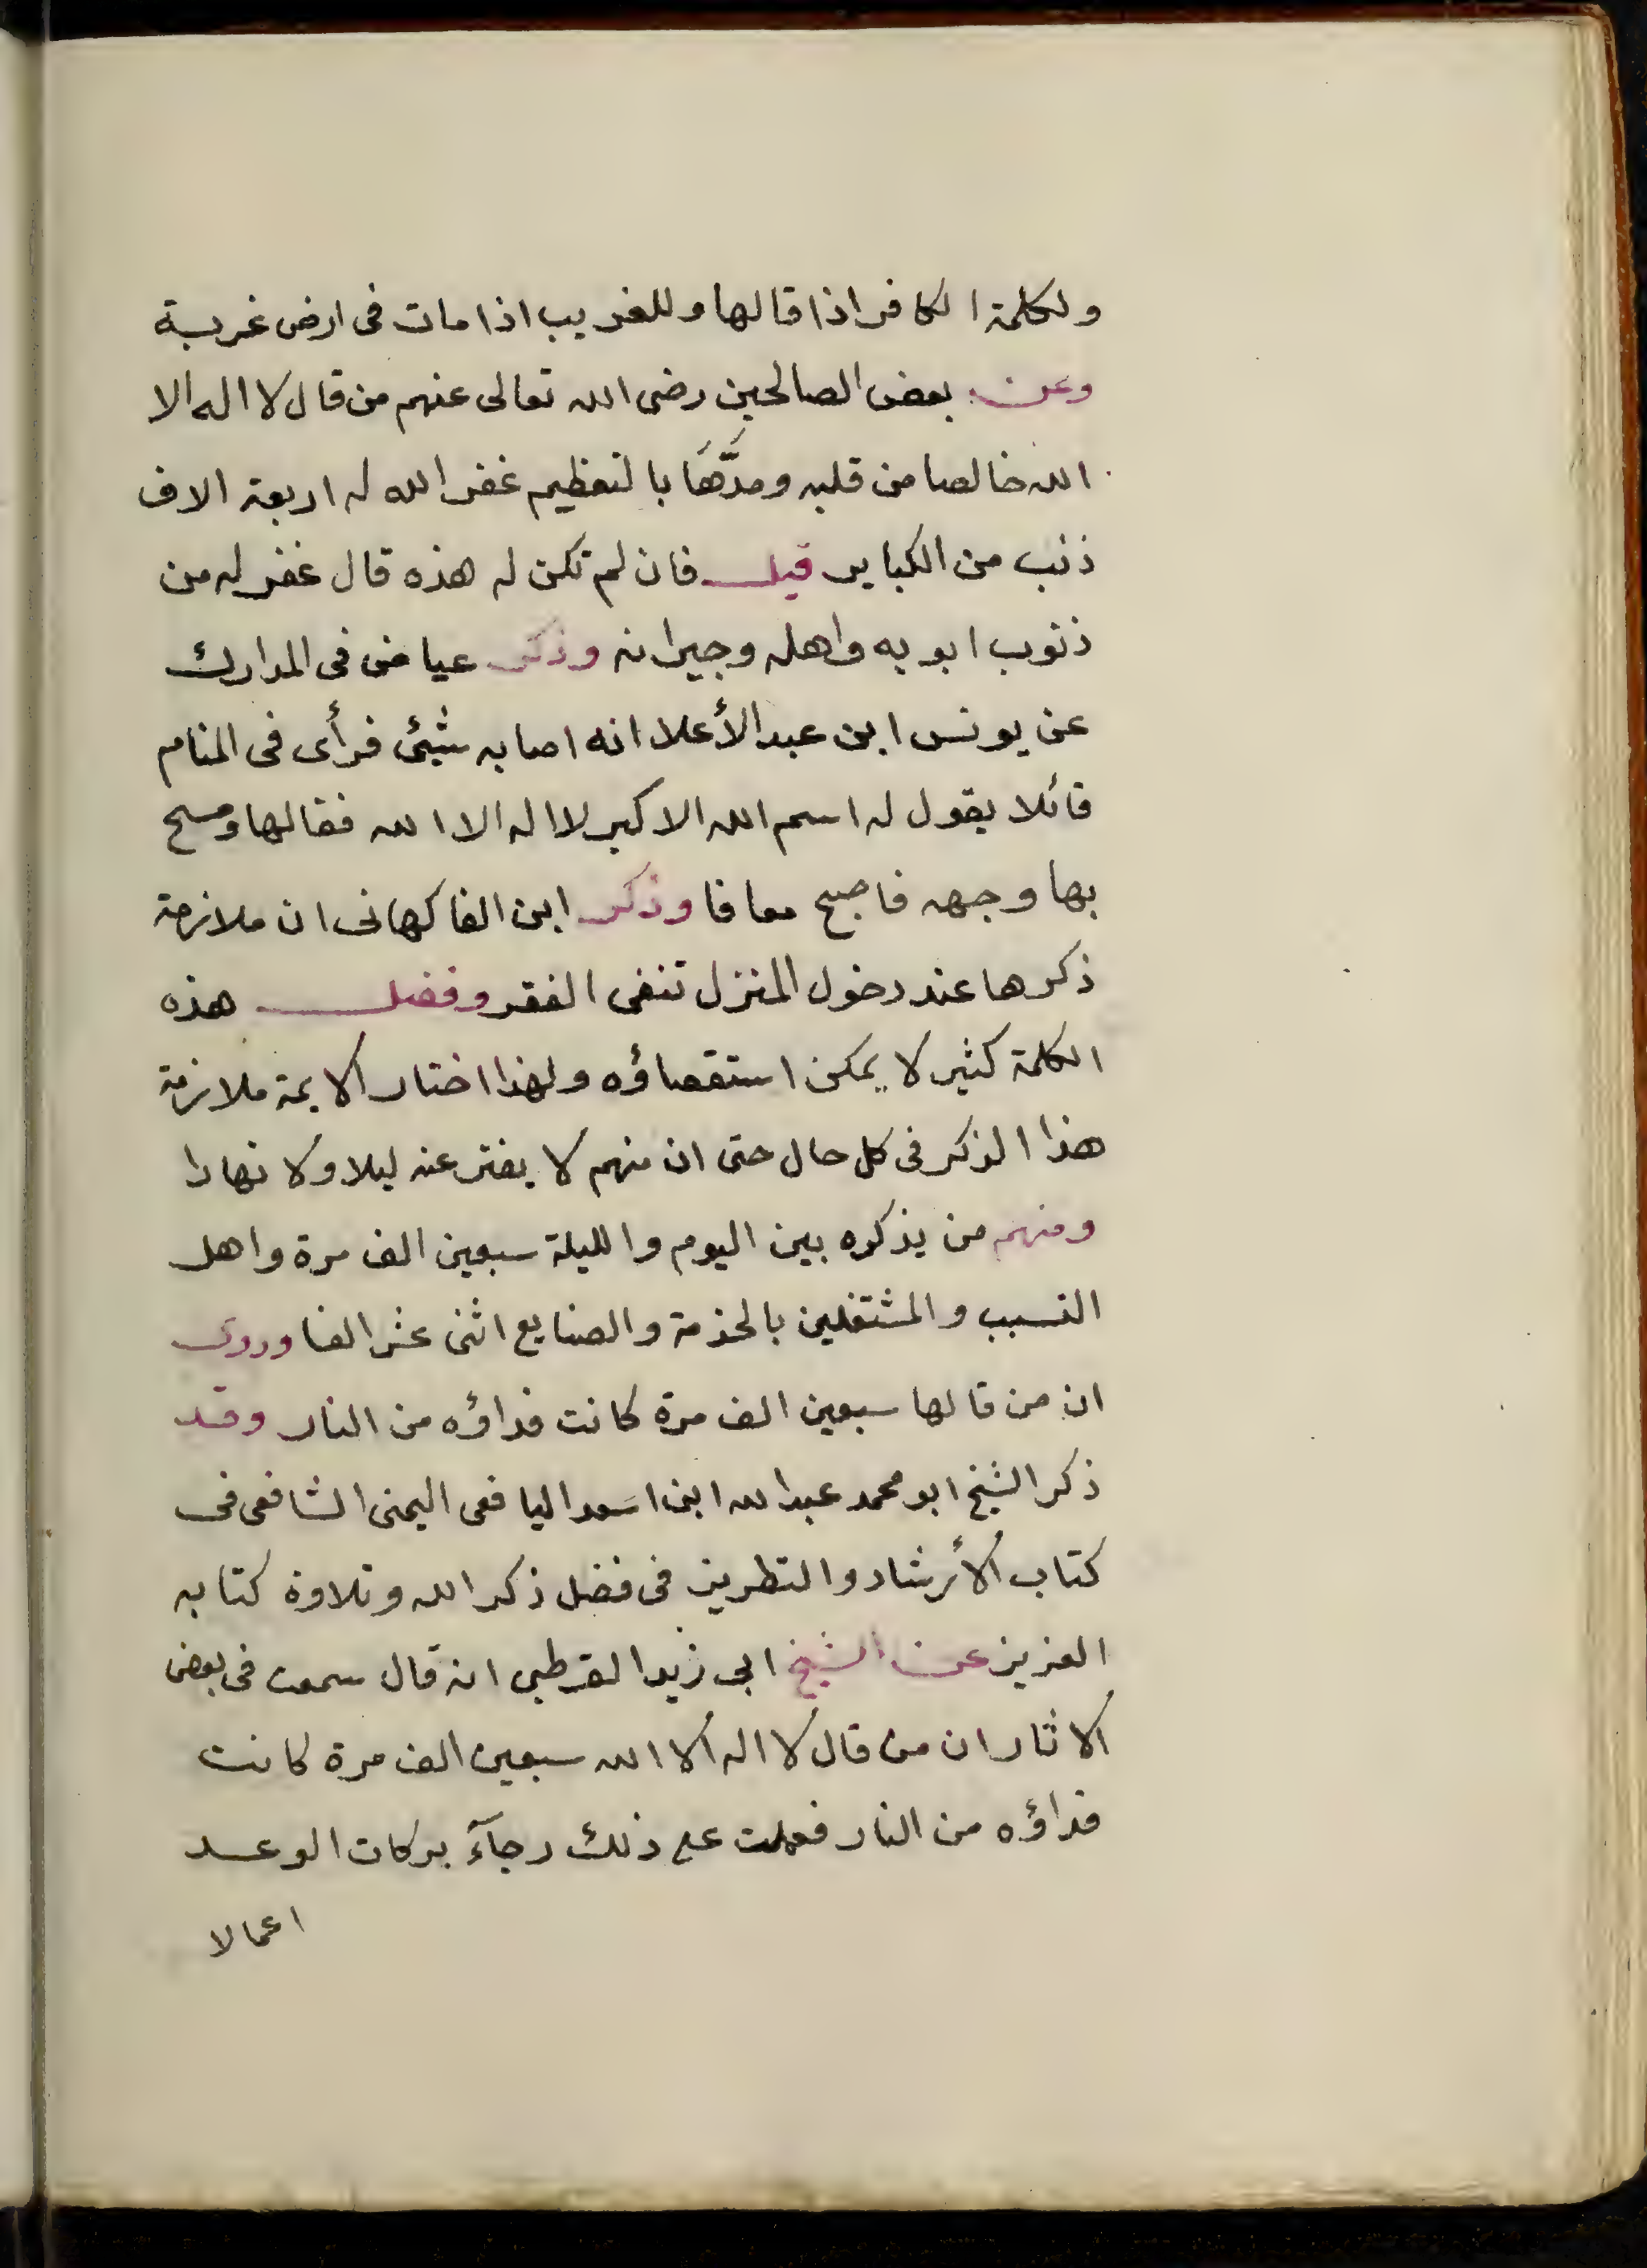 ولكلمة الكافر اذا قالها وللغريب اذا مات فى ارض غربة
وعن بعض الصالحين رضى الله تعالى عنهم من قال لا اله الا
الله خالصا من قلبه ومدَّهَا بالتعظيم غفر الله له اربعة الاف
ذنب من الكباير قيل فان لم تكن له هذه قال غفر له من
ذنوب ابويه واهله وجيرانه وذكر عياض فى المدارك
عن يونس ابن عبد الأعلا انه اصابه شيئ فرأى فى المنام
قائلا يقول له اسم الله الاكبر لا اله الا الله فقالها ومسح
بها وجهه فاصبح معافا وذكر ابن الفاكهانى ان ملازمة
ذكرها عند دخول المنزل تنفى الفقر وفضل هذه
الكلمة كثير لا يمكن استقصاؤه ولهذا اختار الايمة ملازمة
هذا الذكر فى كل حال حتى ان منهم لا يفتر عنه ليلا ولا نهارا
ومنهم من يذكره بين اليوم والليلة سبعين الف مرة واهل
التسبب والمشتغلين بالخدمة والصنايع اثنى عشر الفا وروى
ان من قالها سبعين الف مرة كانت فداؤه من النار وقد
ذكر الشيخ ابو محمد عبد الله ابن اسَعد اليافعى اليمنى الشافعى فى
كتاب الأرشاد والتطريز فى فضل ذكر الله وتلاوة كتابه
العزيز عن الشيخ ابى زيد القرطبى انه قال سمعت فى بعض
الاثار ان من قال لا اله الا الله سبعين الف مرة كانت
فداؤه من النار فعملت على ذلك رجآءَ بركات الوعد
اعمالا